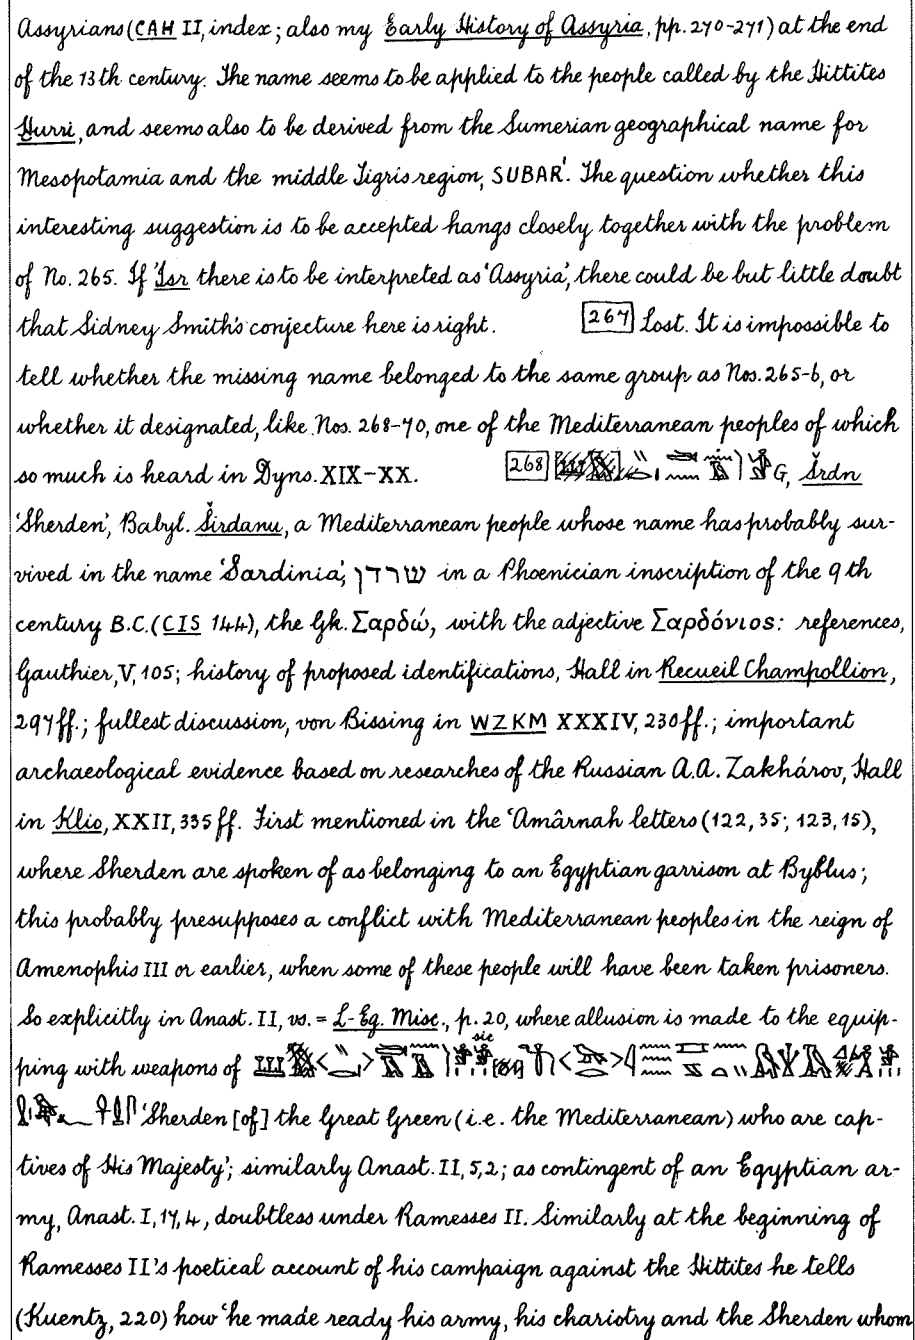 Assyrians (CAH II, index; also my Early History of Assyria, pp. 270-271) at the end
of the 13th century. The name seems to be applied to the people called by the Hittites
Ḫurri, and seems also to be derived from the Sumerian geographical name for
Mesopotamia and the middle Tigris region, SUBAR'. The question whether this
interesting suggestion is to be accepted hangs closely together with the problem
of No. 265. If 'Isr there is to be interpreted as 'Assyria', there could be but little doubt
that Sidney Smith's conjecture here is right. 267 Lost. It is impossible to
tell whether the missing name belonged to the same group as Nos. 265-6, or
whether it designated, like Nos. 268-70, one of the Mediterranean peoples of which
so much is heard in Dyns. XIX-XX. 268 G, Šrdn
'Sherden', Babyl. Širdanu, a Mediterranean people whose name has probably sur-
vived in the name 'Sardinia', שרדן in a Phoenician inscription of the 9th
century B.C. (CIS 144), the Gk. Σαρδώ, with the adjective Σαρδόνιος: references,
Gauthier, V, 105; history of proposed identifications, Hall in Recueil Champollion,
297 ff.; fullest discussion, von Bissing in WZKM XXXIV, 230 ff.; important
archaeological evidence based on researches of the Russian A.A. Zakhárov, Hall
in Klio, XXII, 335 ff. First mentioned in the 'Amârnah letters (122, 35; 123, 15),
where Sherden are spoken of as belonging to an Egyptian garrison at Byblus;
this probably presupposes a conflict with Mediterranean peoples in the reign of
Amenophis III or earlier, when some of these people will have been taken prisoners.
So explicitly in Anast. II, vs. = L-Eg. Misc., p. 20, where allusion is made to the equip-
ping with weapons of sic
'Sherden [of] the Great Green (i.e. the Mediterranean) who are cap-
tives of His Majesty'; similarly Anast. II, 5, 2; as contingent of an Egyptian ar-
my, Anast. I, 17, 4, doubtless under Ramesses II. Similarly at the beginning of
Ramesses II's poetical account of his campaign against the Hittites he tells
(Kuentz, 220) how 'he made ready his army, his chariotry and the Sherden whom